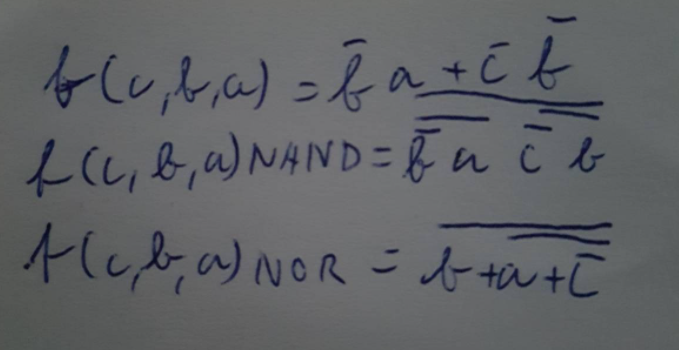 f(c,b,a) = b̄ a + c̄ b̄
f(c,b,a) NAND = \overline{\overline{b̄ a} \overline{c̄ b}}
f(c,b,a) NOR = \overline{b + \overline{a + c̄}}